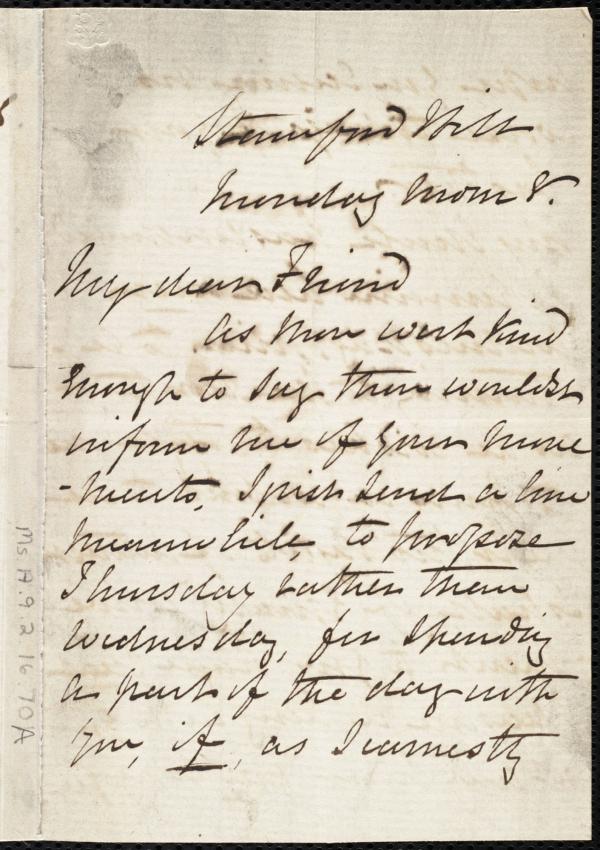 Stamford Hill
Monday Morn 8.
My dear Friend
As thou wert kind
enough to say thou wouldst
inform me of your move
-ments, I just send a line
meanwhile, to propose
Thursday rather than
Wednesday, for spending
a part of the day with
you, if, as I earnestly
Ms A.9.2 16 70A